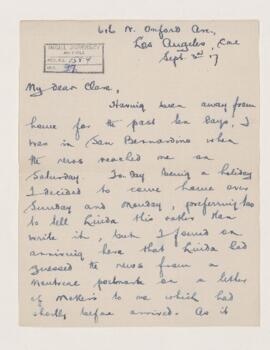 616 N. Oxford Ave,
Los Angeles, Cal
Sept. 3rd 17
McGILL UNIVERSITY
ARCHIVES
ACC. NO. 1584
REF. 27
My dear Clare,
Having been away from
home for the past ten days, I
was in San Bernardino when
the news reached me on
Saturday. To-day being a holiday
I decided to come home over
Sunday and Monday, preferring
to tell Linda this rather than
write it, but I found on
arriving here that Linda had
guessed the news from a
Montreal postmark on a letter
of Mother's to me which had
shortly before arrived. As it